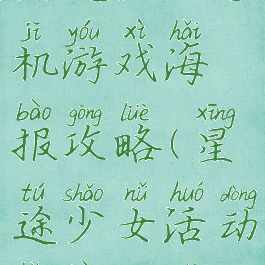 jī yóu xì hǎi
机游戏海
bào gōng lüè xīng
报攻略(星
tú shǎo nǚ huó dòng
途少女活动